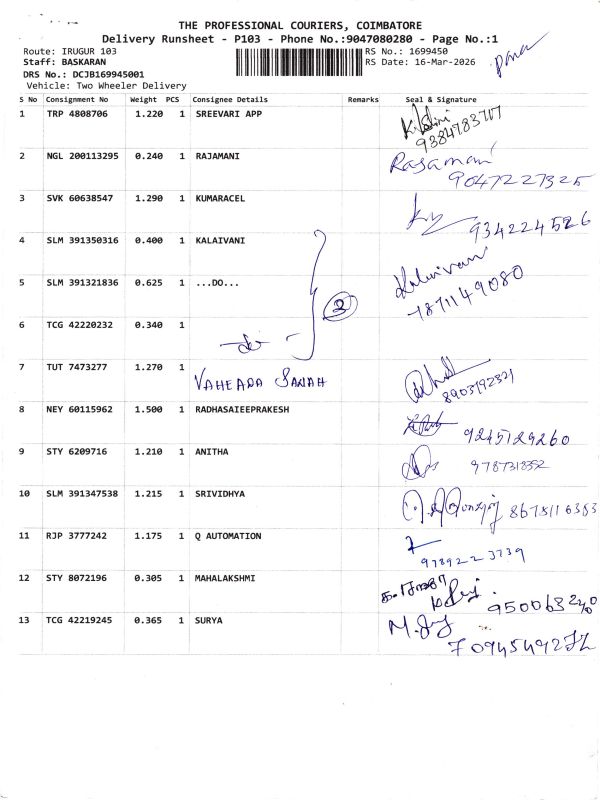 THE PROFESSIONAL COURIERS, COIMBATORE
Delivery Runsheet - P103 - Phone No.:9047080280 - Page No.:1
Route: IRUGUR 103 RS No.: 1699450
Staff: BASKARAN RS Date: 16-Mar-2026
DRS No.: DCJB169945001
Vehicle: Two Wheeler Delivery
S No Consignment No Weight PCS Consignee Details Remarks Seal & Signature
1 TRP 4808706 1.220 1 SREEVARI APP
2 NGL 200113295 0.240 1 RAJAMANI Rajamani
9047227325
3 SVK 60638547 1.290 1 KUMARACEL
934224526
4 SLM 391350316 0.400 1 KALAIVANI Kalaivani
5 SLM 391321836 0.625 1 ...DO... 7871149080
3
6 TCG 42220232 0.340 1
7 TUT 7473277 1.270 1
VAHEADA SANAH
8903192321
8 NEY 60115962 1.500 1 RADHASAIEEPRAKESH
9245129260
9 STY 6209716 1.210 1 ANITHA
10 SLM 391347538 1.215 1 SRIVIDHYA
11 RJP 3777242 1.175 1 Q AUTOMATION
9789223739
12 STY 8072196 0.305 1 MAHALAKSHMI
13 TCG 42219245 0.365 1 SURYA